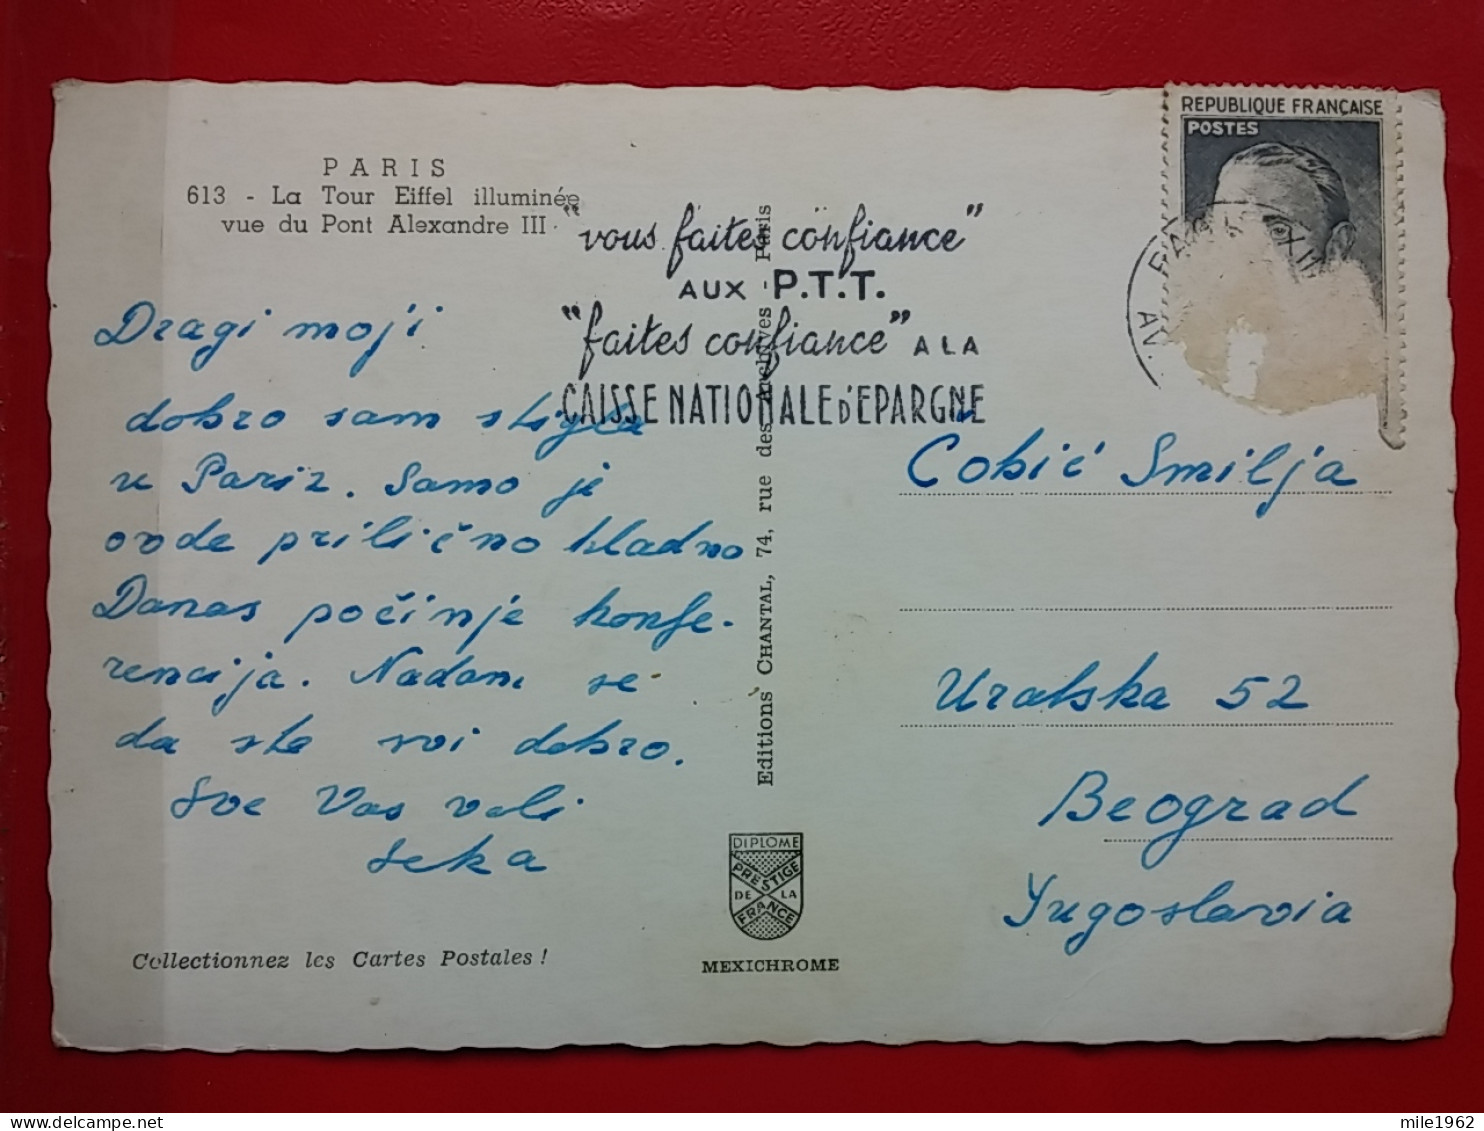 PARIS
613 - La Tour Eiffel illuminée
vue du Pont Alexandre III
Dragi moji
dobro sam stigla
u Pariz. Samo je
ovde prilično hladno
Danas počinje konfe-
rencija. Nadam se
da ste svi dobro.
Sve Vas voli
Seka
Collectionnez les Cartes Postales !
"vous faites confiance"
AUX P.T.T.
"faites confiance" A LA
CAISSE NATIONALE D'EPARGNE
Editions CHANTAL, 74, rue des Archives Paris
DIPLOME
PRESTIGE
DE LA
FRANCE
MEXICHROME
REPUBLIQUE FRANÇAISE
POSTES
Čobić Smilja
Uralska 52
Beograd
Yugoslavia
mile1962